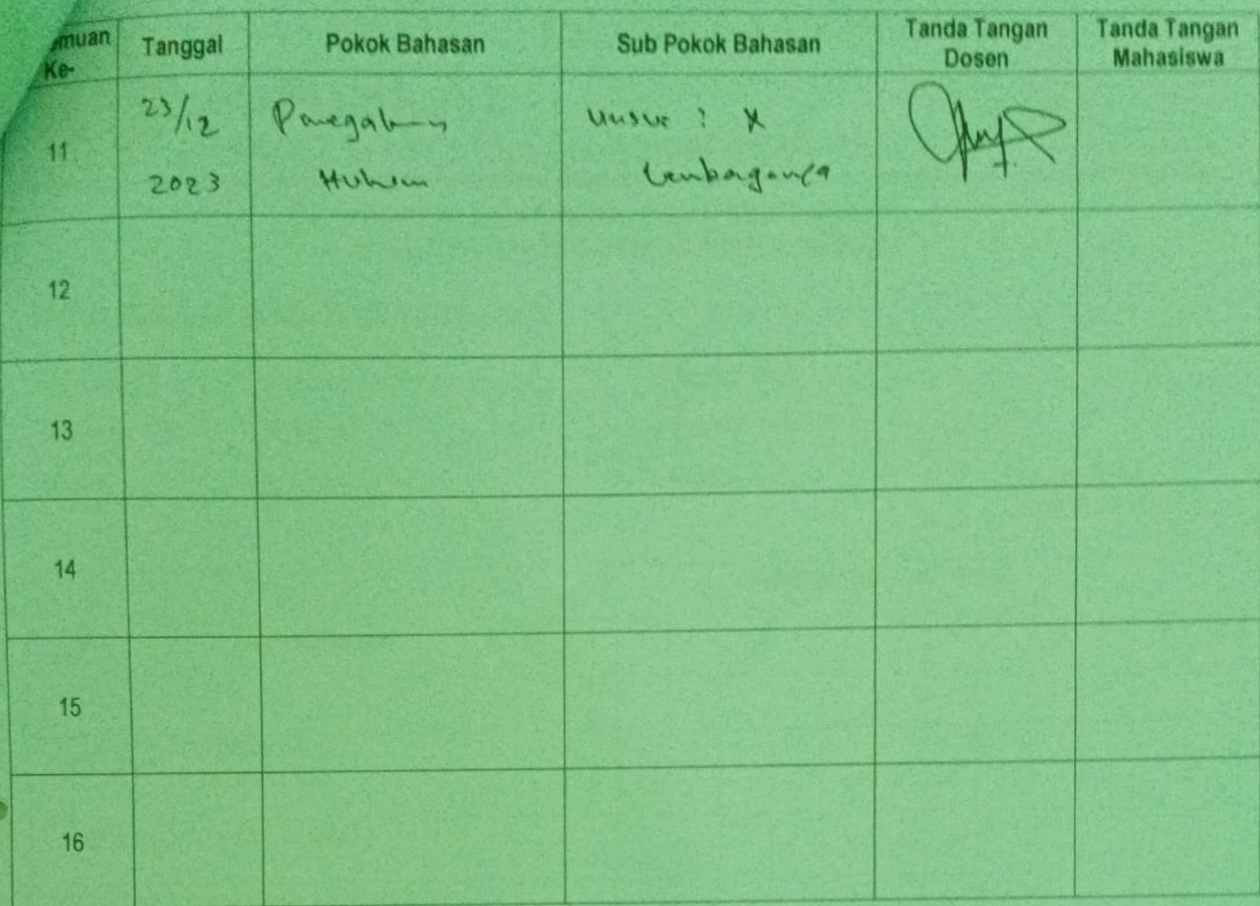 emuan Ke- Tanggal Pokok Bahasan Sub Pokok Bahasan Tanda Tangan Dosen Tanda Tangan Mahasiswa
11 23/12 2023 Hukum Unsur :
12
13
14
15
16